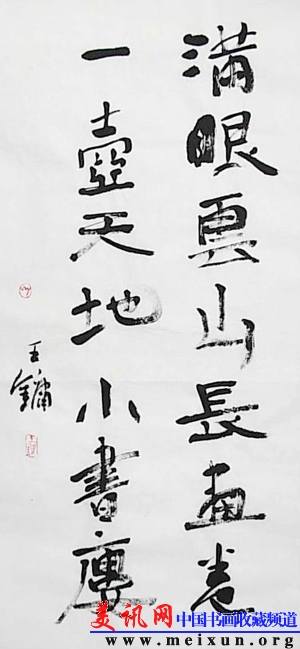 滿眼雲山長畫卷
一壺天地小書廔
王鏞
美讯网 中国书画收藏频道
www.meixun.org